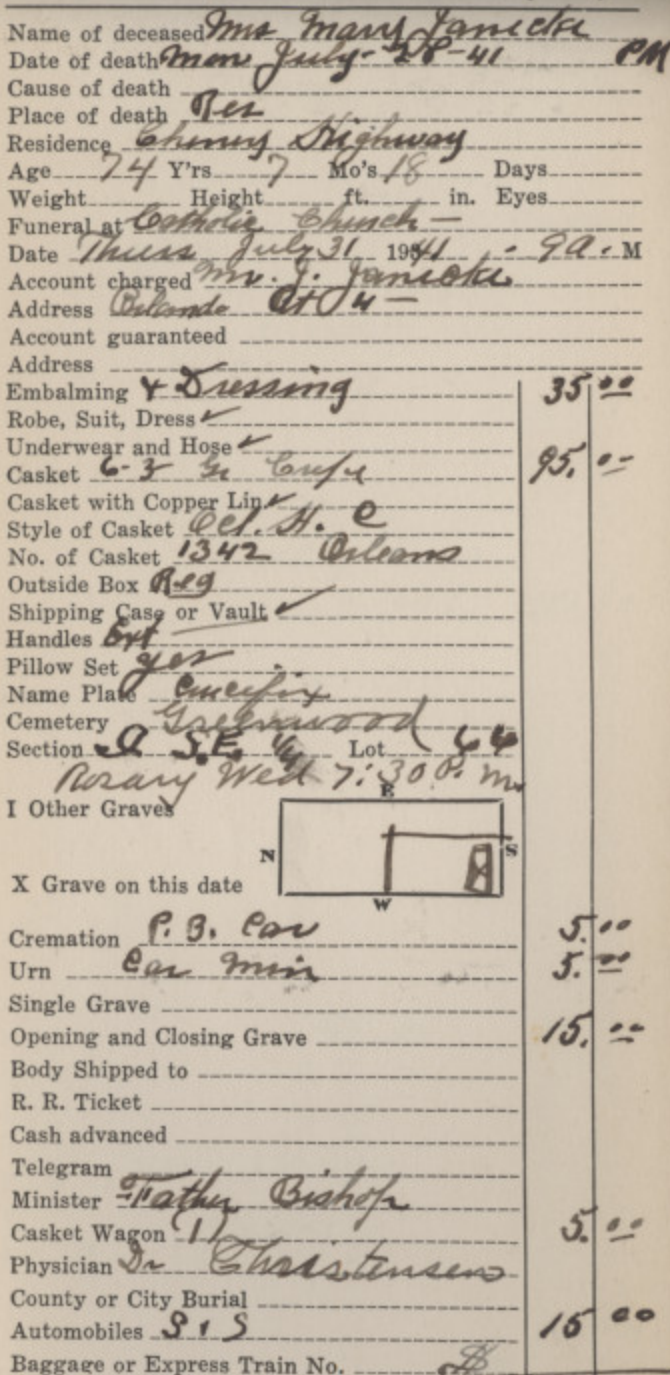 Name of deceased Mrs Mary Janicke
Date of death Mon July - 28 - 41 PM
Cause of death
Place of death Res
Residence Cheney Highway
Age 74 Y'rs 7 Mo's 18 Days
Weight Height ft. in. Eyes
Funeral at Catholic Church —
Date Thurs July 31 1941 - 9 A. M
Account charged Mr. J. Janicke
Address Orlando Rt 4 —
Account guaranteed
Address
Embalming & Dressing 35 00
Robe, Suit, Dress ✓
Underwear and Hose ✓
Casket 6-3 Gr Crepe 95. 00
Casket with Copper Lin ✓
Style of Casket Oct. H. C
No. of Casket 1342 Orleans
Outside Box Reg
Shipping Case or Vault ✓
Handles Ext
Pillow Set yes
Name Plate Crucifix
Cemetery Greenwood
Section S.E. 1/4 Lot 64
Rosary Wed 7:30 P. M.
E
I Other Graves
N S
X Grave on this date
W
Cremation P. B. Car 5. 00
Urn Car Min 5. 00
Single Grave
Opening and Closing Grave 15. 00
Body Shipped to
R. R. Ticket
Cash advanced
Telegram
Minister Father Bishop
Casket Wagon (1) 5. 00
Physician Dr Christensen
County or City Burial
Automobiles S & S 15 00
Baggage or Express Train No.